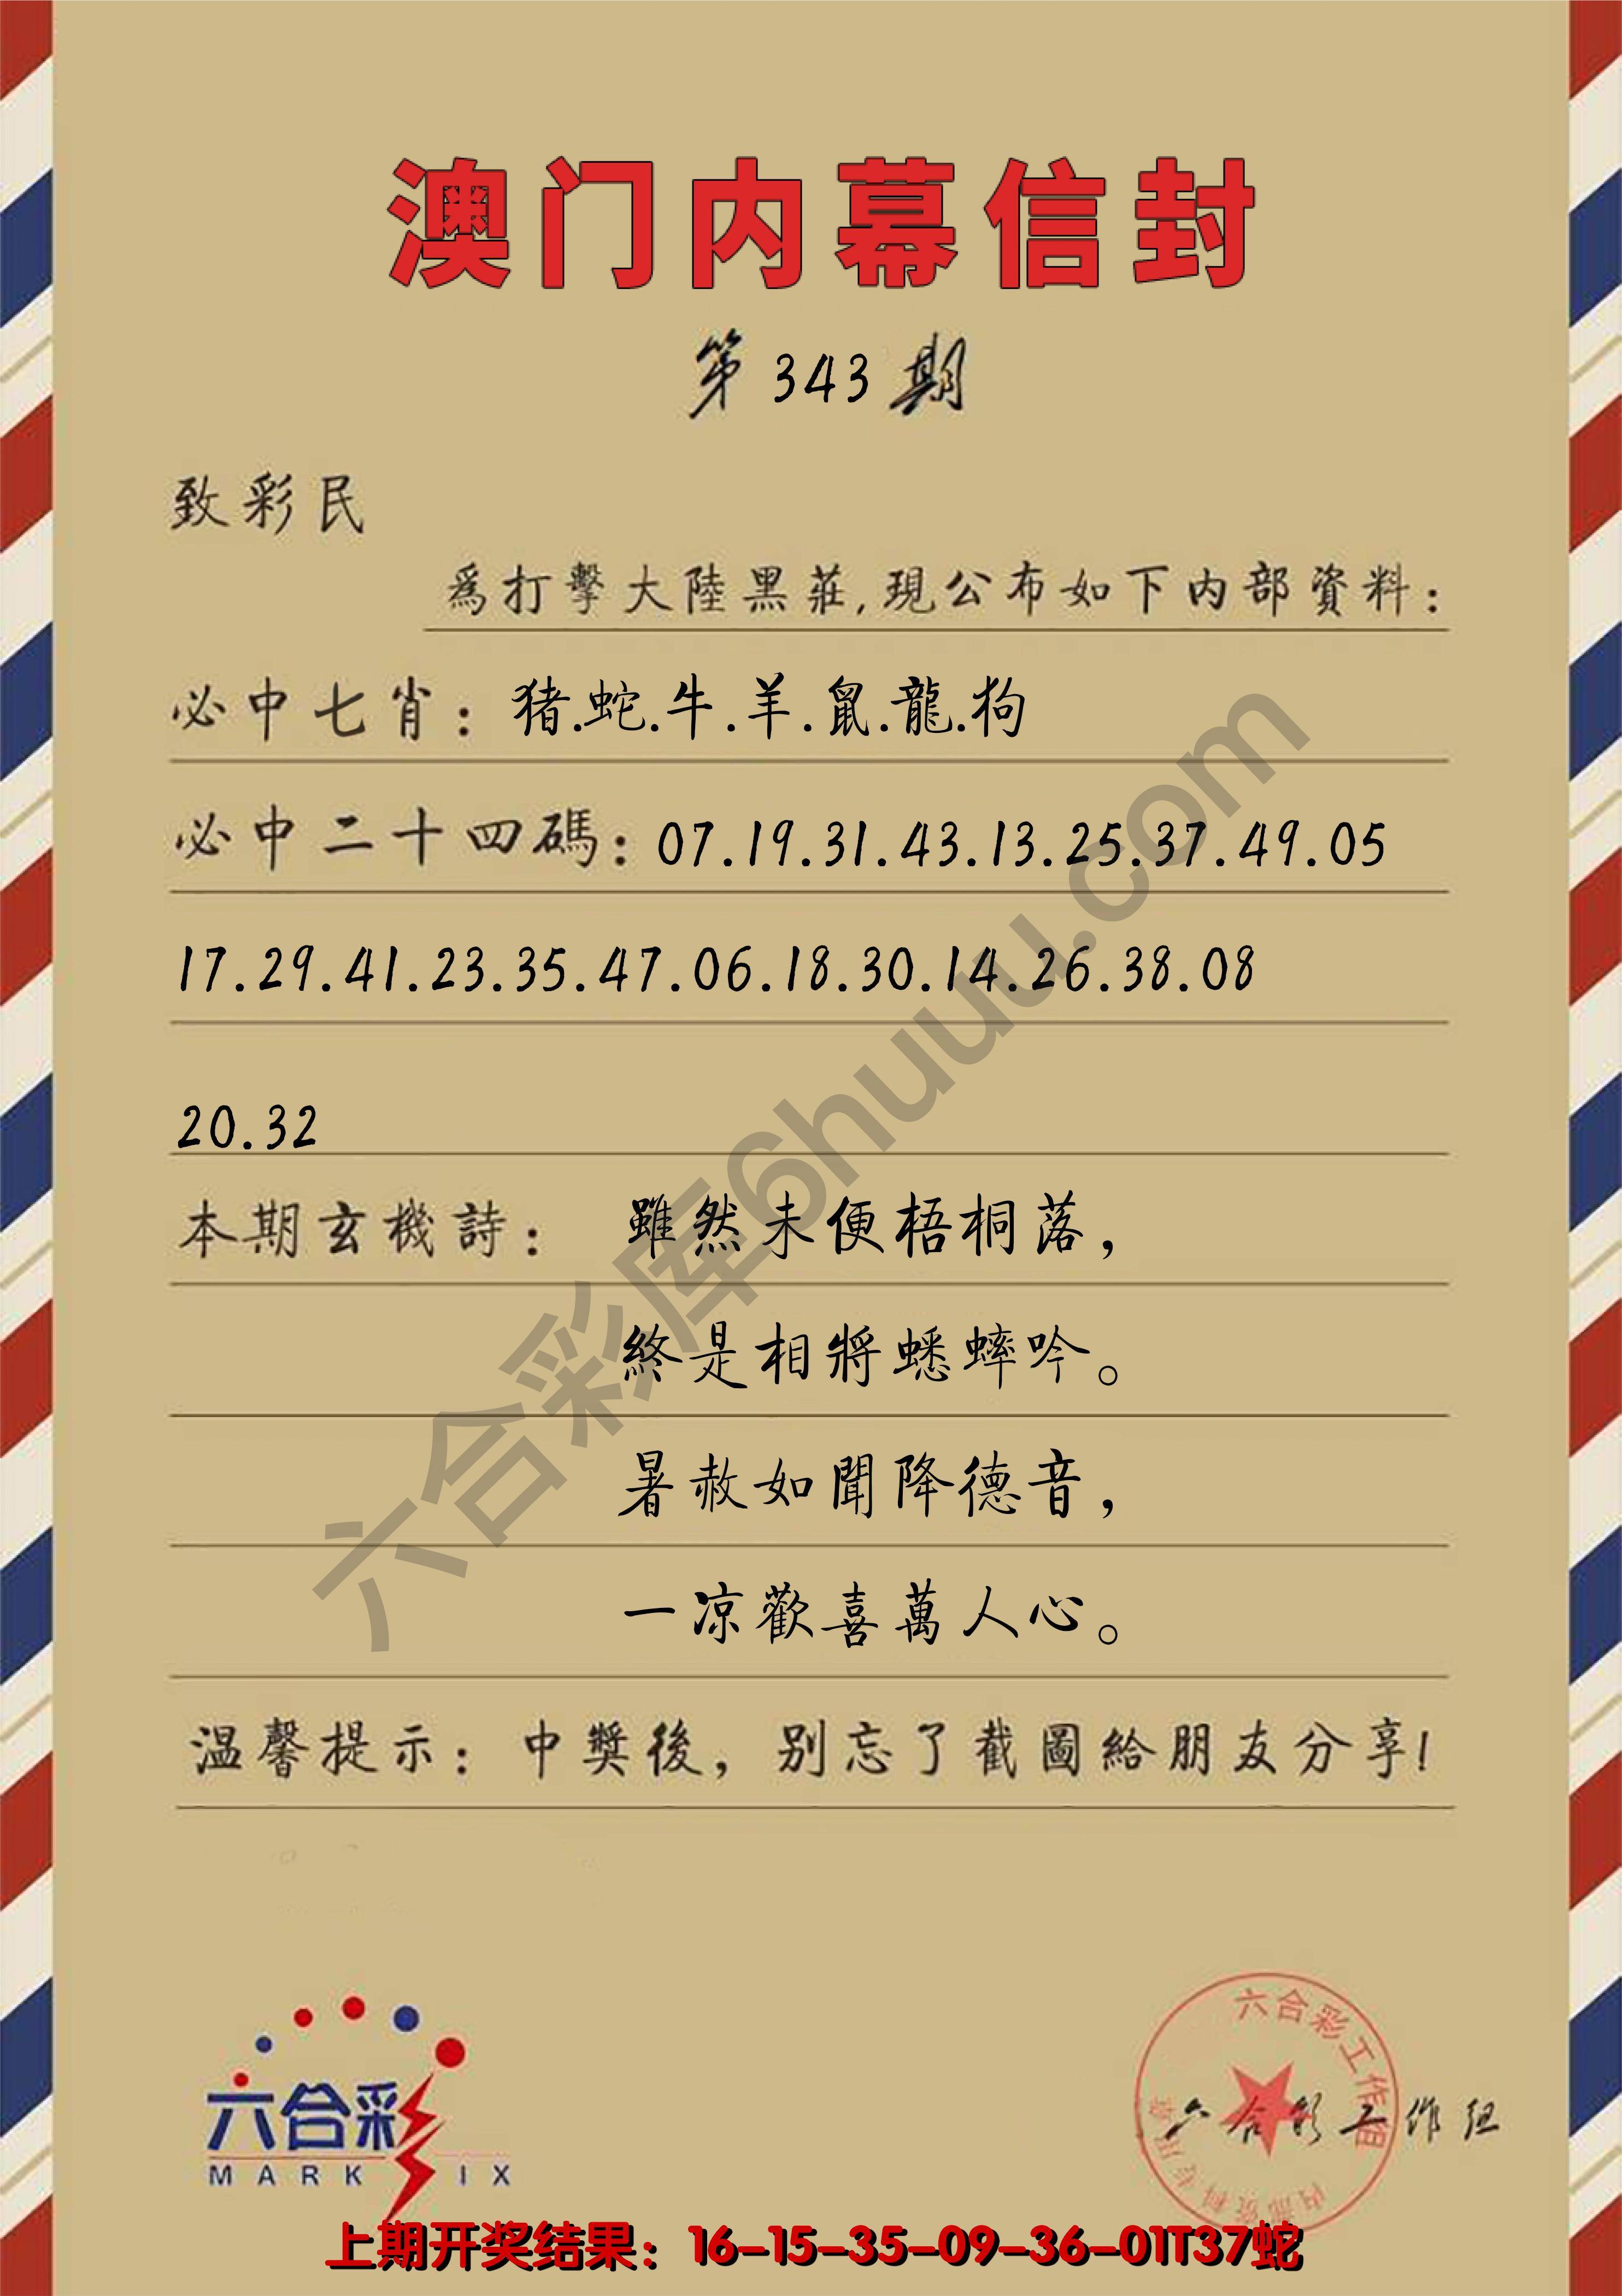 澳门内幕信封
第343期
致彩民
爲打擊大陸黑莊,現公布如下内部資料:
必中七肖:猪.蛇.牛.羊.鼠.龍.狗
必中二十四碼:07.19.31.43.13.25.37.49.05
17.29.41.23.35.47.06.18.30.14.26.38.08
20.32
本期玄機詩: 雖然未便梧桐落,
終是相將蟋蟀吟。
暑赦如聞降德音,
一凉歡喜萬人心。
温馨提示:中獎後,别忘了截圖給朋友分享!
六合彩库6huuu.com
六合彩
MARK IX
六合彩工作组
六合彩工作组
内部资料专用章
上期开奖结果:16-15-35-09-36-01T37蛇